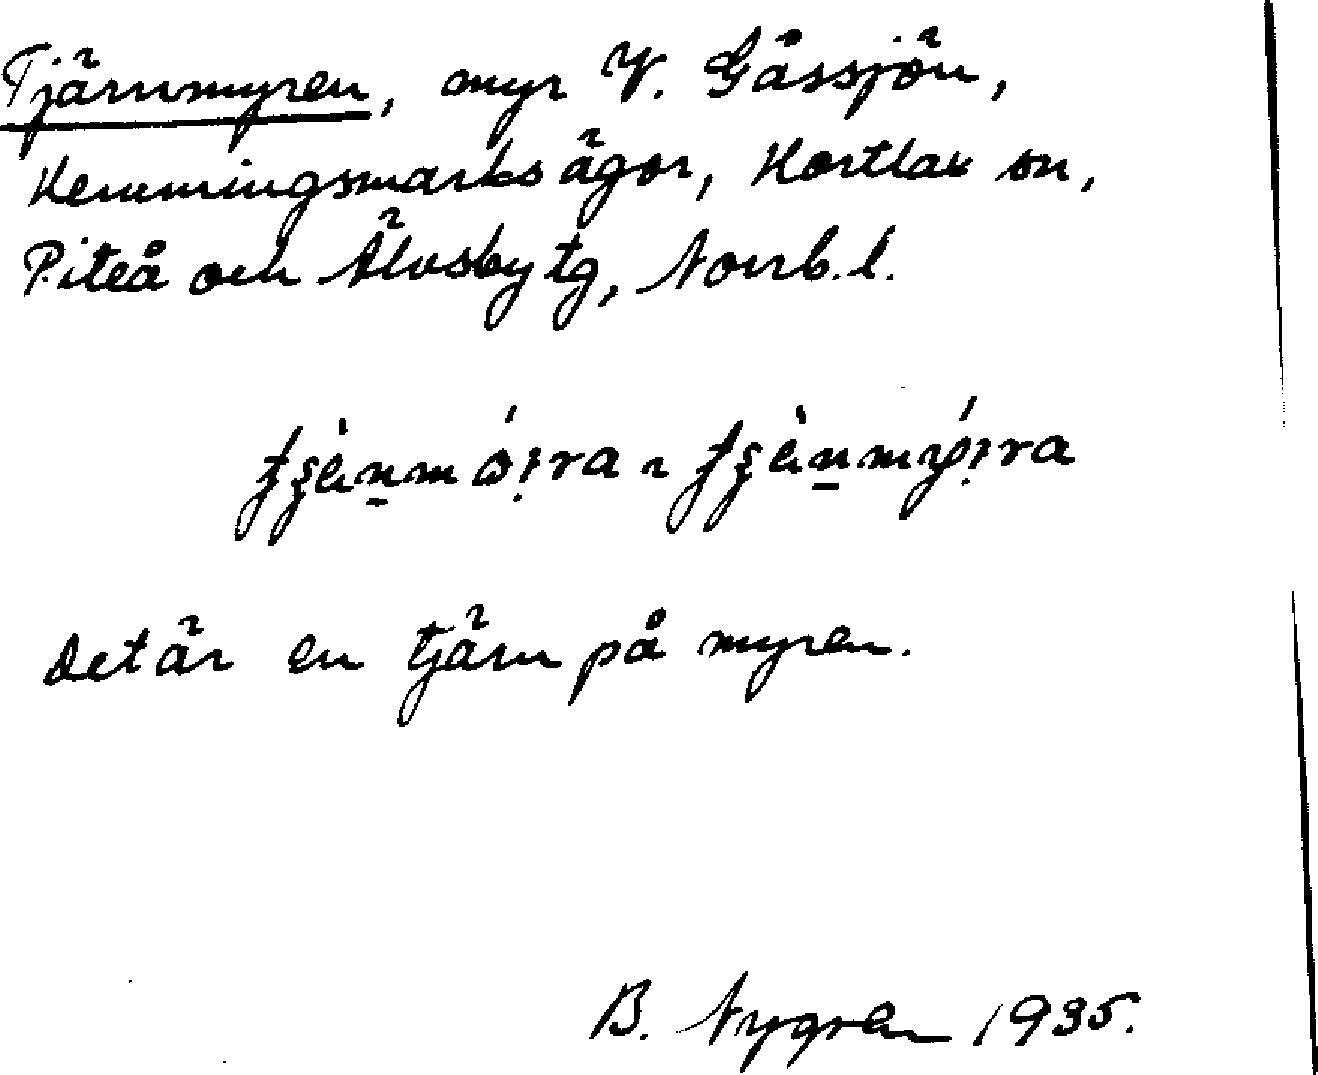 Tjärnmyren, myr V. Gåssjön,
Hemmingsmarks ägor, Hortlax sn,
Piteå och Älvsby tg, Norrb. l.
Det är en tjärn på myren.
B. Nygren 1935.